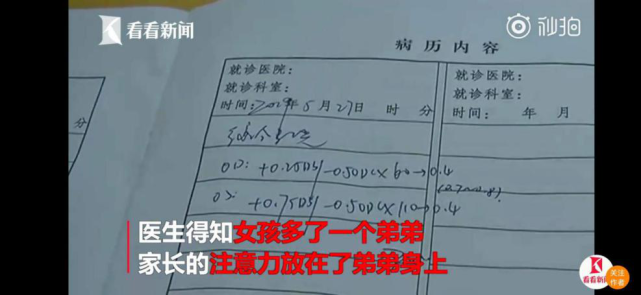 看看新闻
秒拍
病历内容
就诊医院：
就诊科室：
时间：2029年5月27日 时 分
OD：+0.25DS/-0.50DC×60→0.4
OS：+0.75DS/-0.50DC×110→0.4
就诊医院：
就诊科室：
时间： 年 月
医生得知女孩多了一个弟弟
家长的注意力放在了弟弟身上
看看新闻
关注
作者